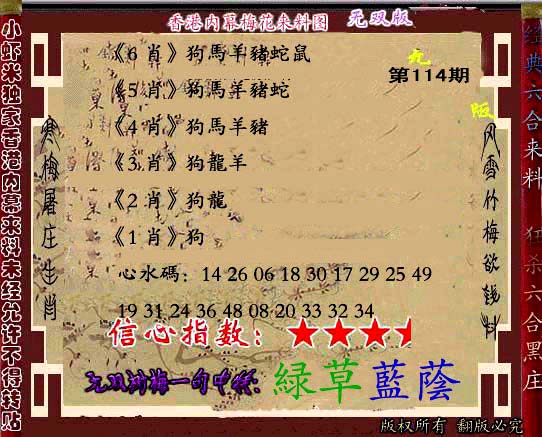 香港内幕梅花来料图 无双版
《6 肖》狗馬羊豬蛇鼠
九
第114期
《5 肖》狗馬羊豬蛇
版
《4 肖》狗馬羊豬
《3 肖》狗龍羊
《2 肖》狗龍
《1 肖》狗
心水碼：14 26 06 18 30 17 29 25 49
19 31 24 36 48 08 20 33 32 34
信心指数：★★★
綠草藍蔭
版权所有 翻版必究
小虾米独家香港内幕来料未经允许不得转贴
寒梅屠庄生肖
风雪竹梅欲钱料
经典六合来料
狂杀六合黑庄